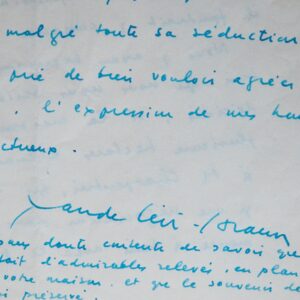 malgré toute sa séduction
prié de bien vouloir agréer
. l'expression de mes
ctueux.
Claude Lévi-Strauss
doute contente de savoir que
d'admirables relevés, en plan
votre maison, et que le souvenir de
préservé.